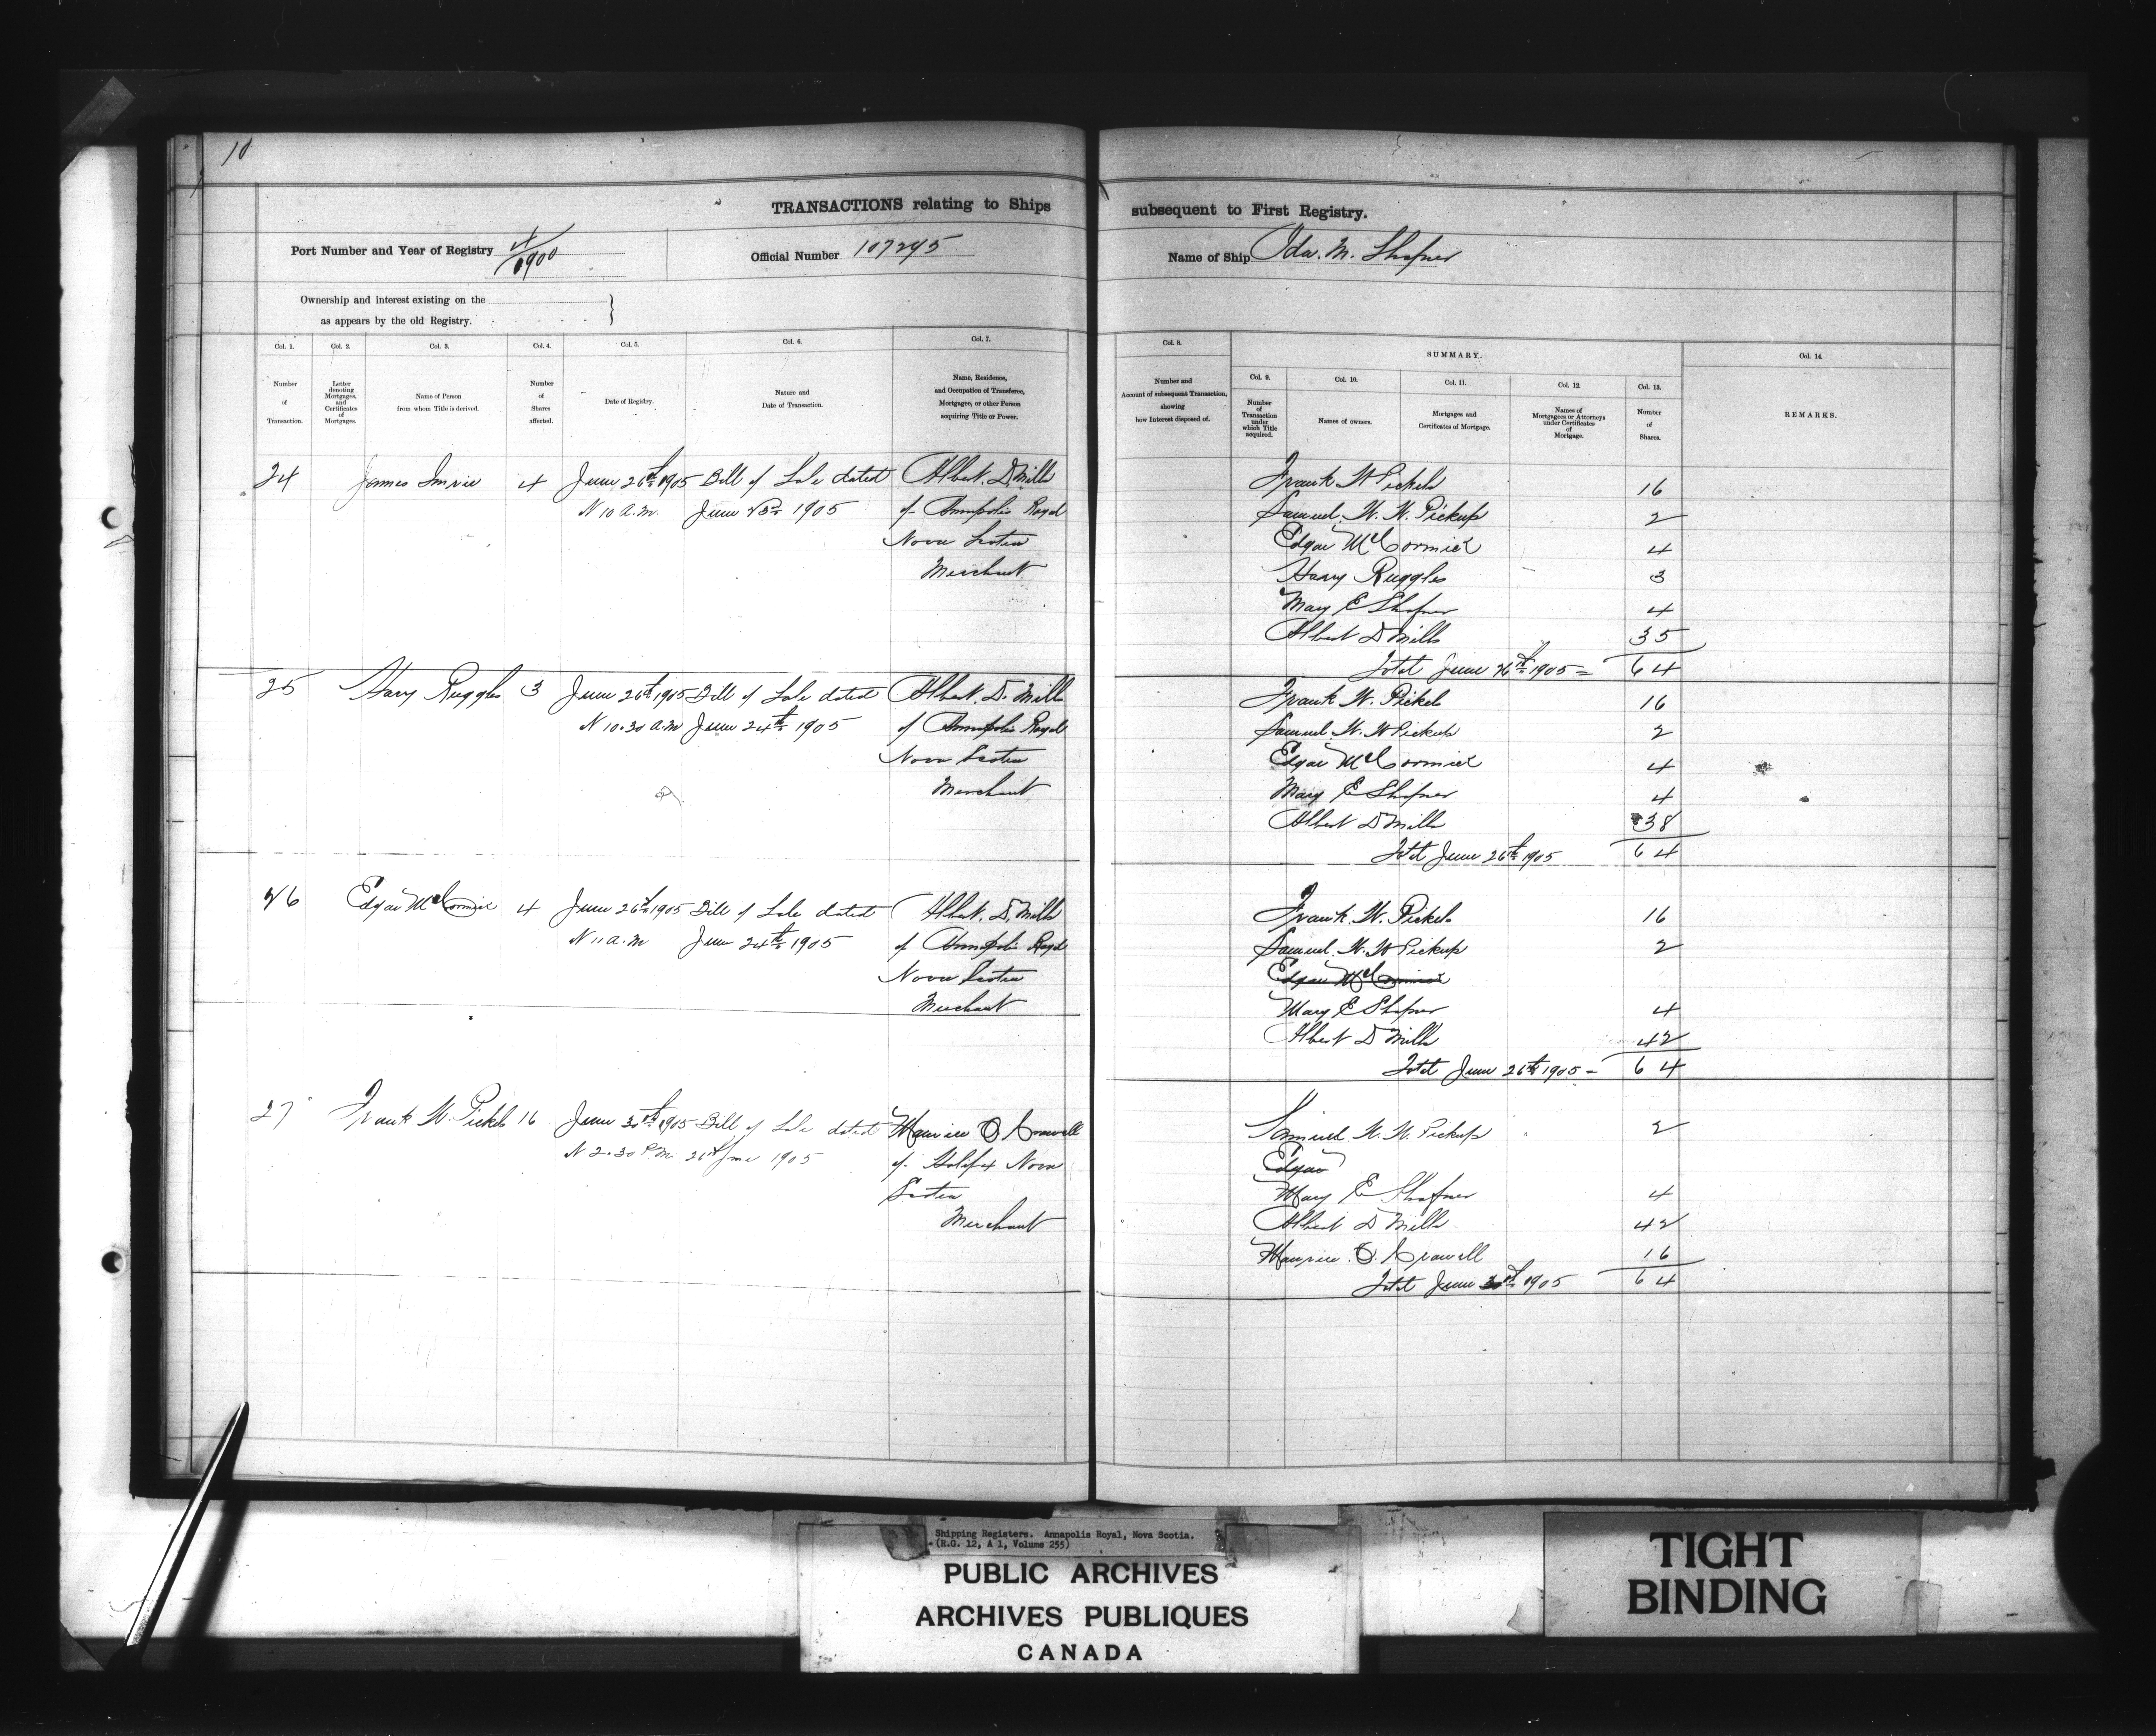 10
TRANSACTIONS relating to Ships subsequent to First Registry.
Port Number and Year of Registry 4/1900
Official Number 107295
Name of Ship Ida. M. Shafner
Ownership and interest existing on the
as appears by the old Registry.
Col. 1. Col. 2. Col. 3. Col. 4. Col. 5. Col. 6. Col. 7.
Number of Transaction.
Letter denoting Mortgages, and Certificates of Mortgages.
Name of Person from whom Title is derived.
Number of Shares affected.
Date of Registry.
Nature and Date of Transaction.
Name, Residence, and Occupation of Transferee, Mortgagee, or other Person acquiring Title or Power.
Col. 8.
Number and Account of subsequent Transaction, showing how Interest disposed of.
SUMMARY.
Col. 9. Col. 10. Col. 11. Col. 12. Col. 13. Col. 14.
Number of Transaction under which Title acquired.
Names of owners.
Mortgages and Certificates of Mortgage.
Names of Mortgagees or Attorneys under Certificates of Mortgage.
Number of Shares.
REMARKS.
24 James Imrie 4 June 26th 1905 Bill of Sale dated Albert. D. Mills
10 a.m. June 23rd 1905 of Annapolis Royal
Nova Scotia
Merchant
Frank W Pickels 16
Samuel. W. W. Pickup 2
Edgar McCormick 4
Harry Ruggles 3
Mary E Shafner 4
Albert D Mills 35
Total June 26th 1905 = 64
25 Harry Ruggles 3 June 26th 1905 Bill of Sale dated Albert. D. Mills
10.30 a.m June 24th 1905 of Annapolis Royal
Nova Scotia
Merchant
Frank W. Pickels 16
Samuel. W. W Pickup 2
Edgar McCormick 4
Mary E Shafner 4
Albert D Mills 38
Total June 26th 1905 64
26 Edgar McCormick 4 June 26th 1905 Bill of Sale dated Albert. D. Mills
11 a.m June 24th 1905 of Annapolis Royal
Nova Scotia
Merchant
Frank. W. Pickels 16
Samuel. W. W Pickup 2
Edgar McCormick
Mary E Shafner 4
Albert D Mills 42
Total June 26th 1905 - 64
27 Frank W. Pickels 16 June 30th 1905 Bill of Sale dated Maurice O. Crowell
2.30 P.M. 26th June 1905 of Halifax Nova
Scotia
Merchant
Samuel W. W. Pickup 2
Edgar
Mary E Shafner 4
Albert D Mills 42
Maurice. O. Crowell 16
Total June 30th 1905 64
Shipping Registers. Annapolis Royal, Nova Scotia.
(R.G. 12, A 1, Volume 255)
PUBLIC ARCHIVES
ARCHIVES PUBLIQUES
CANADA
TIGHT
BINDING